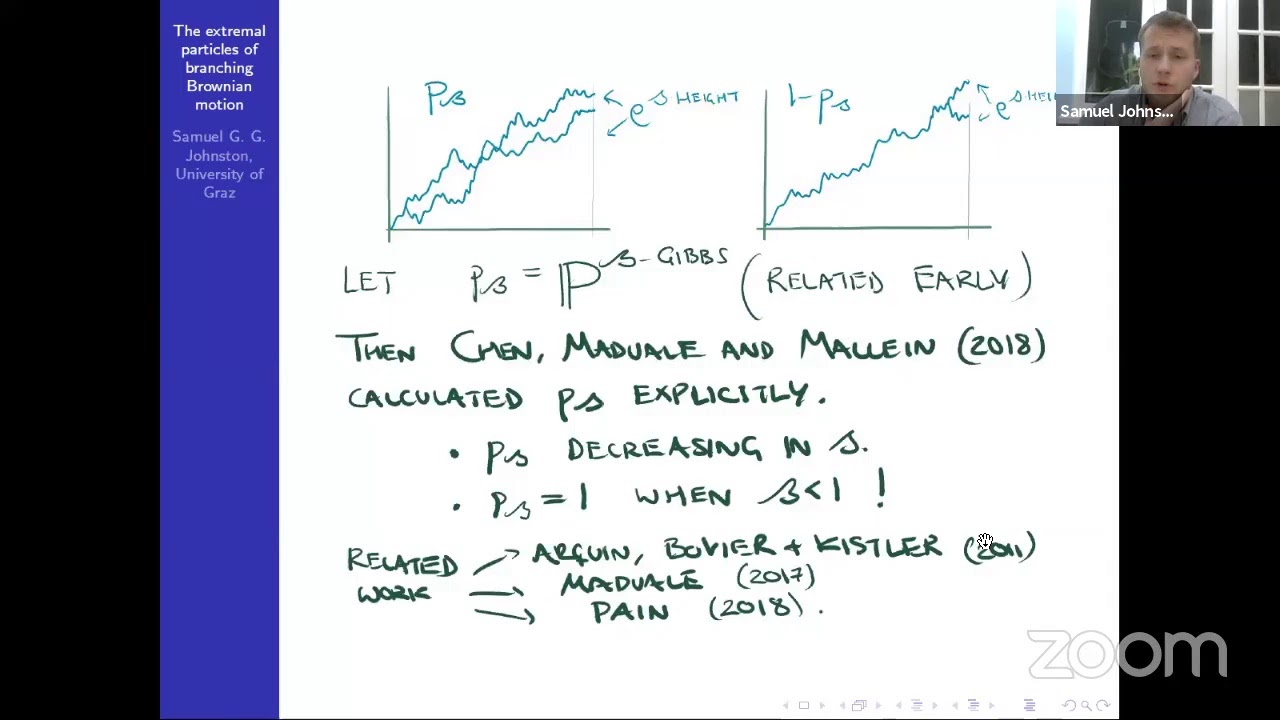 The extremal
particles of
branching
Brownian
motion
Samuel G. G.
Johnston,
University of
Graz
Pβ
e^β HEIGHT
1-Pβ
e^β HEI
Samuel Johns...
LET Pβ = ℙ^β-GIBBS (RELATED EARLY)
THEN CHEN, MADUALE AND MALLEIN (2018)
CALCULATED Pβ EXPLICITLY.
• Pβ DECREASING IN β.
• Pβ = 1 WHEN β<1 !
RELATED WORK → ARGUIN, BOVIER + KISTLER (2011)
→ MADUALE (2017)
→ PAIN (2018).
zoom